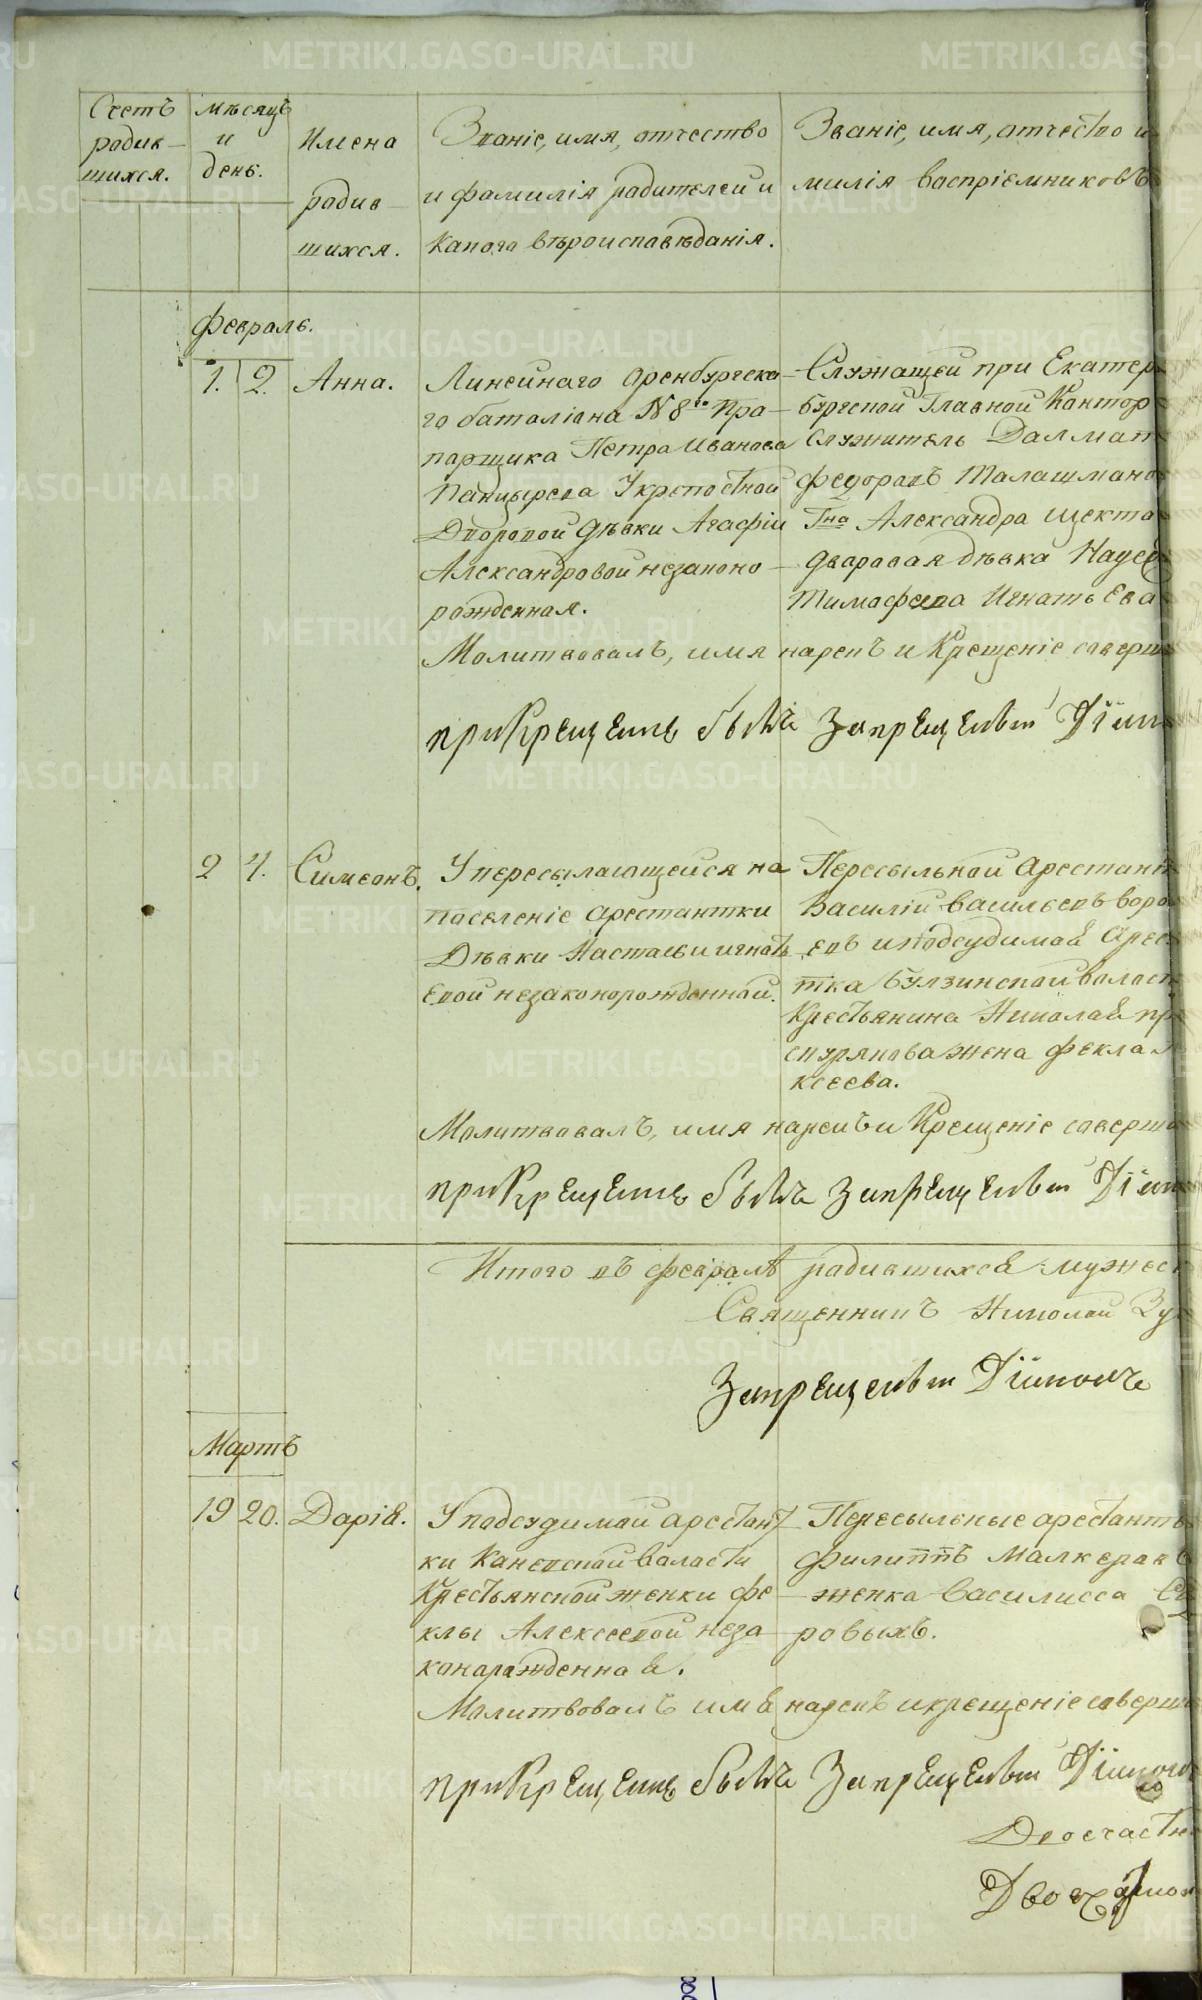 METRIKI.GASO-URAL.RU
Счетъ
родив-
шихся.
мѣсяцъ
и
день.
Имена
родив-
шихся.
Званіе, имя, отчество
и фамилія родителей и
какого вѣроисповѣданія.
Званіе, имя, отчество и
милія воспріемниковъ
Февраль.
1. 2. Анна.
Линейнаго Оренбургска-
го баталіона N 8го Пра-
порщика Петра Иванова
Панцырева У крепостной
Дворовой дѣвки Агафіи
Александровой незаконо-
рожденная.
Служащей при Екатер
бургской Главной Контор
Служитель Далмат
Федоровъ Талашмано
Гна Александра Щекто
дворовая дѣвка Надеж
Тимофеева Игнатьева
Молитвовалъ, имя нарекъ и Крещеніе соверш
при Крещеніе былъ Запрещенный Діяко
2 4. Симеонъ.
У пересылающейся на
поселеніе арестантки
Дѣвки Настасьи игнать
евой незаконорожденной.
Пересыльной Арестант
Василій Васильевъ Воро
евъ и подсудимая Арес
тка Булзинской волост
Крестьянина Николая пр
скурякова жена Фекла
ксеева.
Молитвовалъ, имя нарекъ и Крещеніе соверши
при Крещеніе былъ Запрещенный Діяко
Итого въ февралѣ родившихся мужеск
Священникъ Николай
Запрещенный Діяконъ
Мартъ
19 20. Дарія.
У подсудимой арестант-
ки Каневской Валасти
Крестьянской женки Фе-
клы Алексеевой неза-
конарожденная.
Пересыльные арестантъ
Филиппъ Малкеровъ
женка Василисса
ровыхъ.
Молитвовалъ имя нарекъ и крещеніе соверши
при Крещеніе былъ Запрещенный Діякон